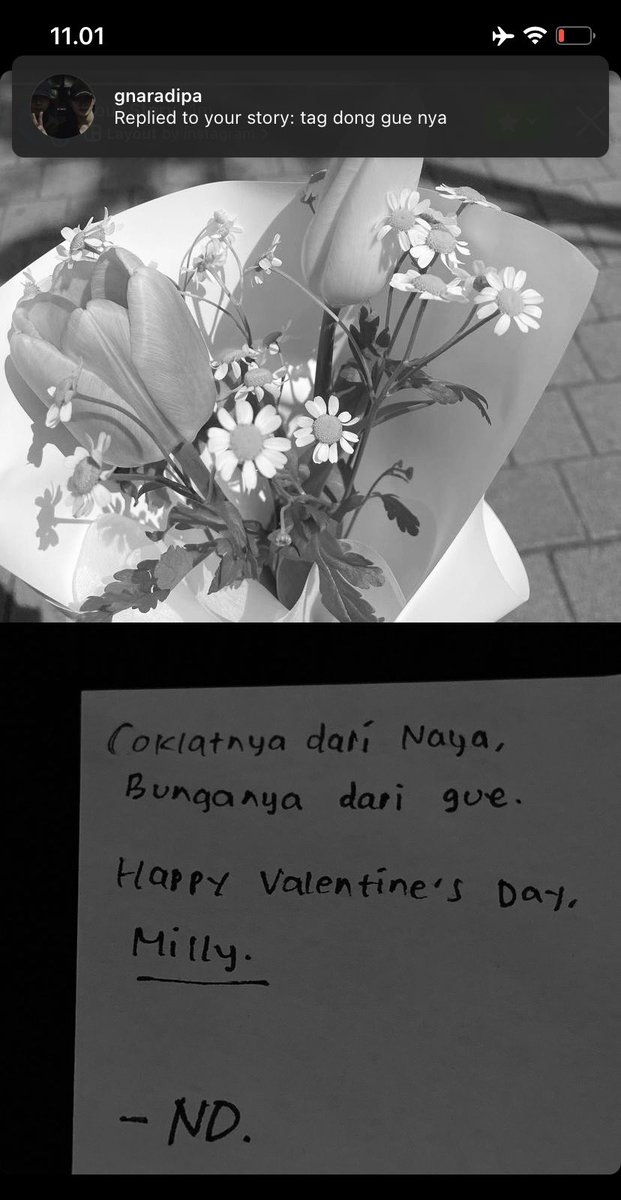 11.01
gnaradipa
Replied to your story: tag dong gue nya
Layout by Instagram >
Coklatnya dari Naya,
Bunganya dari gue.
Happy Valentine's Day,
Milly.
- ND.